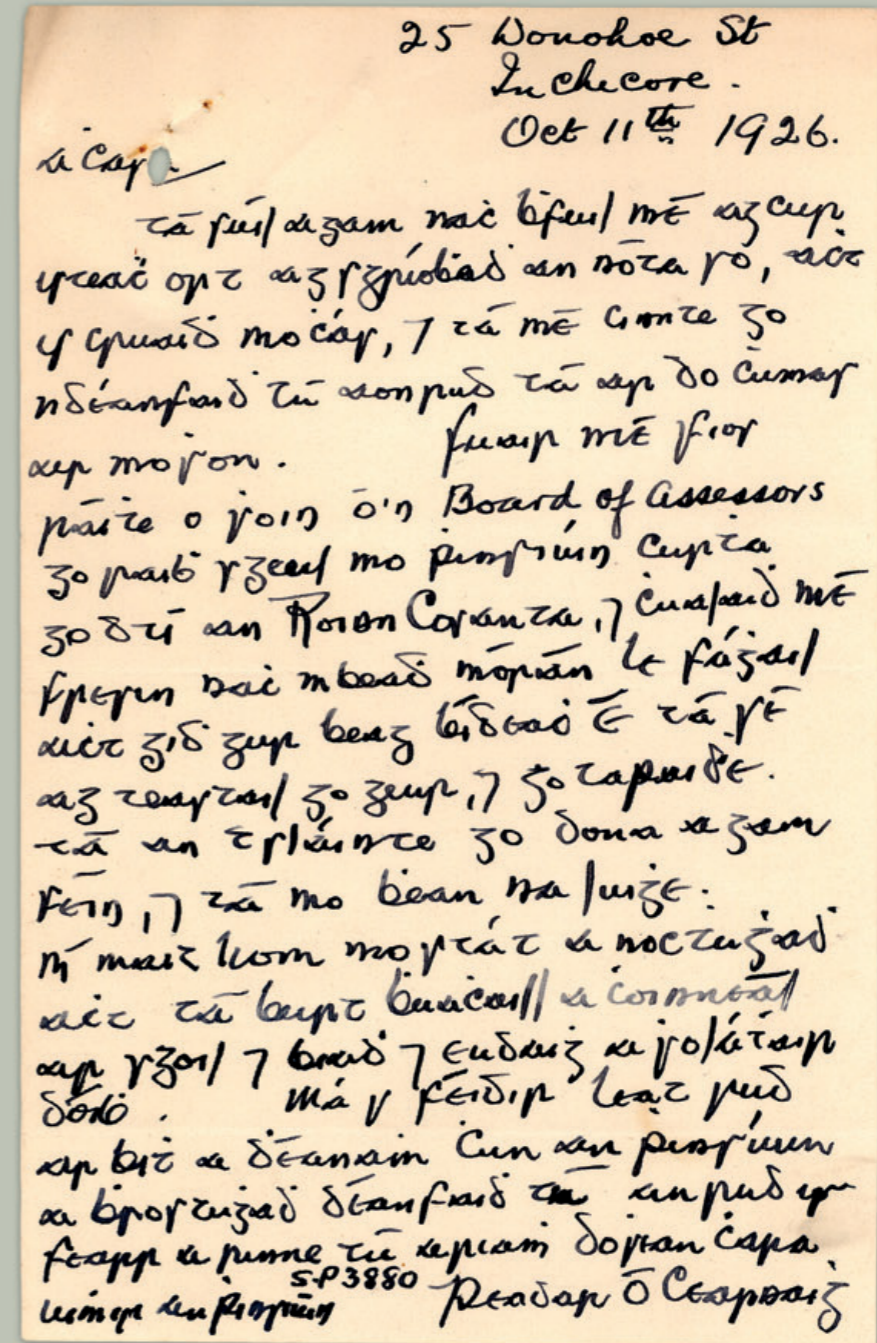 25 Donohoe St
Inchicore.
Oct 11th 1926.
A ċara
Tá súil agam naċ ḃfuil mé ag cur
isteaċ ort ag sgríoḃaḋ an nóta so, aċt
is cruaiḋ mo ċás, ⁊ tá mé cinnte go
ndéanfaiḋ tú aon rud tá ar do ċumas
ar mo ṡon. Fuair mé fios
ráiṫe o ṡoin ó'n Board of Assessors
go raiḃ sgeul mo ṗinsiúin curṫa
go dtí an Roinn Cosanta, ⁊ ċualaiḋ mé
freisin naċ mbeaḋ mórán le fáġail
aċt giḋ gur beag bídeaċ é tá sé
ag teastail go geur, ⁊ go tapaiḋe.
Tá an tsláinte go dona agam
féin, ⁊ tá mo ḃean na luiġe.
Ní maiṫ liom mo stát a noċtuġaḋ
aċt tá beirt ḃuaċaill a ċoinneál
ar sgoil ⁊ biaḋ ⁊ eudaiġ a ṡoláṫair
dóiḃ. Má s féidir leat rud
ar biṫ a ḋéanaiṁ ċun an ṗinsiúin
a ḃrostuġaḋ déanfaiḋ tú an rud is
fearr a rinne tú ariaṁ do ṡean ċara
uiṁir an ṗinsiúin S.P 3880 Peadar Ó Cearnaiġ